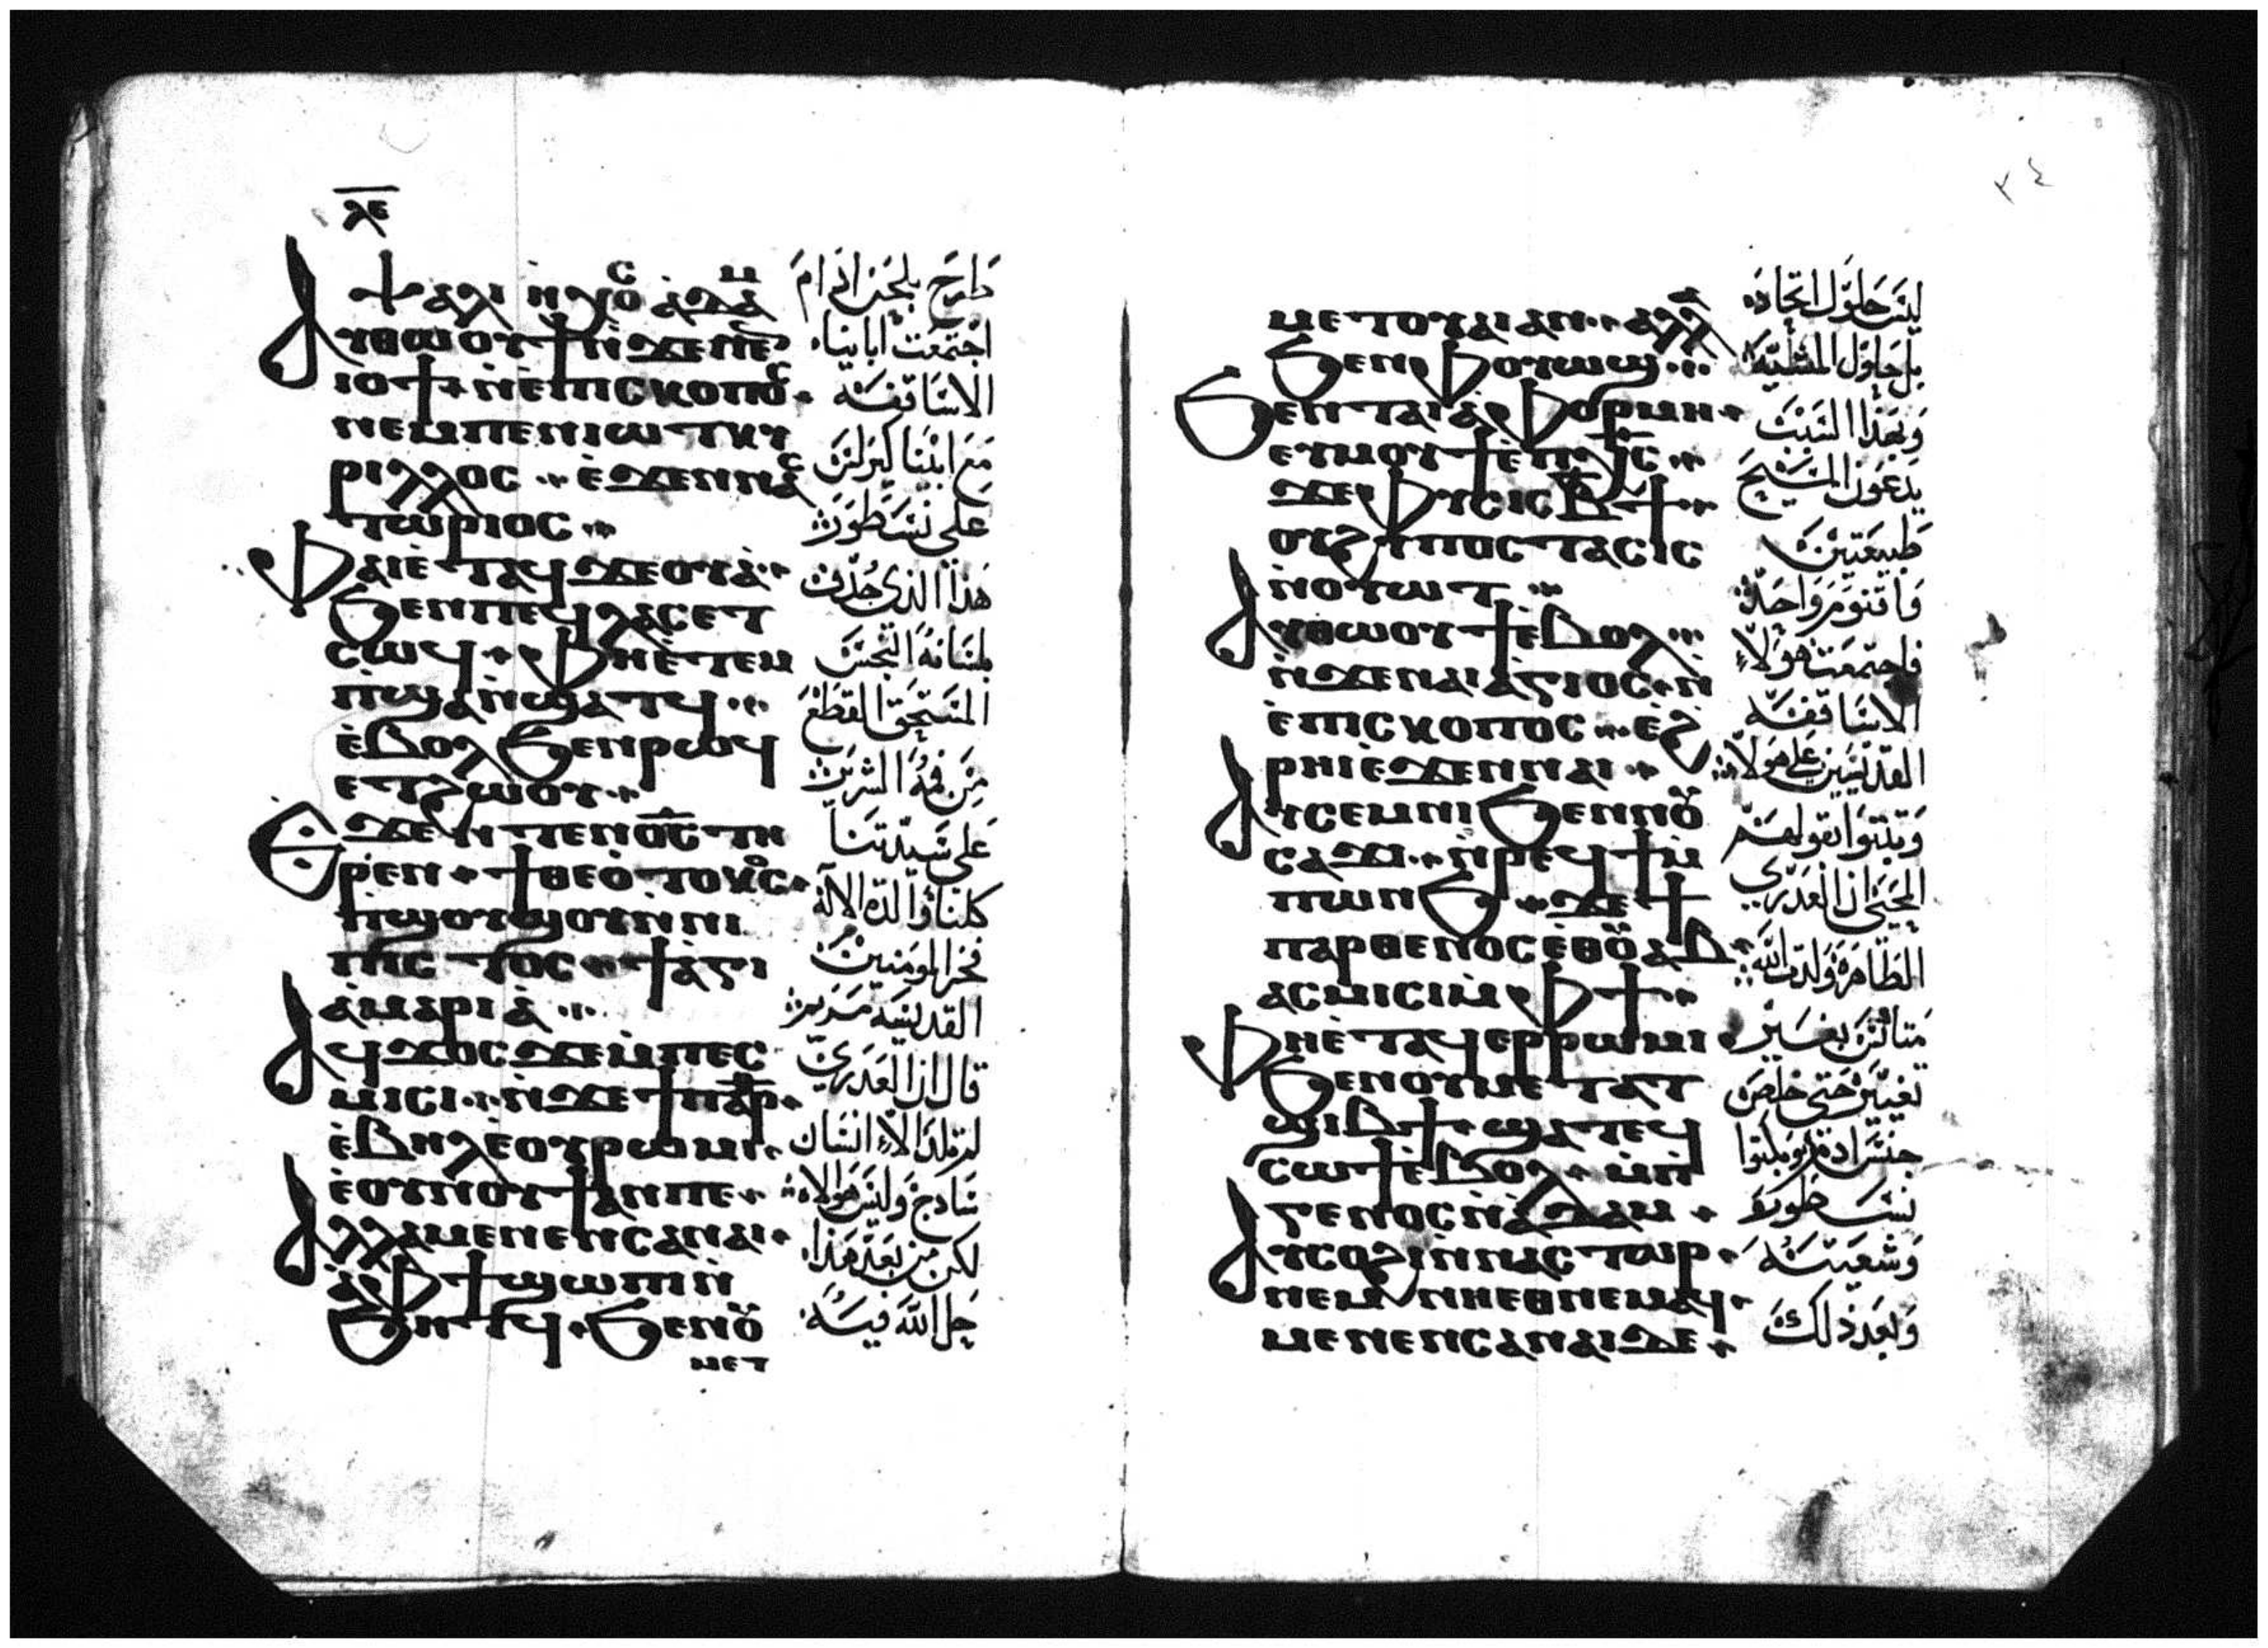 ⲗⲉ
ⲯⲁⲗⲓ ⲛ̀ⲭⲟⲥ ⲁⲇⲁⲙ
ⲁⲩⲑⲱⲟⲩϯ ⲛ̀ϫⲉⲛⲉⲛ
ⲓⲟϯ ⲛ̀ⲉⲡⲓⲥⲕⲟⲡⲟⲥ
ⲛⲉⲙⲡⲉⲛⲓⲱⲧⲕⲩ
ⲣⲓⲗⲗⲟⲥ ⲉ̀ϫⲉⲛⲛⲁⲥ
ⲧⲱⲣⲓⲟⲥ
ⲫⲁⲓⲉ̀ⲧⲁϥϫⲉⲟⲩⲁ̀
ϧⲉⲛⲡⲉϥⲗⲁⲥⲉⲧ
ⲥⲱϥ ⲫⲏⲉ̀ⲧⲉⲙ
ⲡ̀ϣⲁⲛ̀ϣⲁⲧϥ
ⲉ̀ⲃⲟⲗϧⲉⲛⲣⲱϥ
ⲉⲧϩⲱⲟⲩ
ⲉϫⲉⲛⲧⲉⲛⲟ̅ⲥ̅ⲧⲏ
ⲣⲉⲛ ϯⲑⲉⲟ̀ⲧⲟⲕⲟⲥ
ⲡ̀ϣⲟⲩϣⲟⲩⲛ̀ⲛⲓ
ⲡⲓⲥⲧⲟⲥ ϯⲁ̀ⲅⲓ
ⲁⲙⲁⲣⲓⲁ̀
ⲁϥϫⲟⲥϫⲉⲙ̀ⲡⲉⲥ
ⲙⲓⲥⲓ ⲛ̀ϫⲉϯⲡⲁⲣ
ⲉ̀ⲃⲏⲗⲉ̀ⲟⲩⲣⲱⲙⲓ
ⲉ̀ⲟⲩⲛⲟⲩϯⲁⲛⲡⲉ
ⲁⲗⲗⲁⲙⲉⲛⲉⲛⲥⲁⲛⲁⲓ
ⲁ̀ⲫϯϣⲱⲡⲓⲛ̀
ϧⲏⲧϥ ϧⲉⲛⲟⲩ
ⲙⲉⲧ
اجتمعت ابايناء
الاساقفه
مع ابينا كيرلس
على نسطورس
هذا الذي جدف
بلسانه النجس
المستحق القطع
من فمه الشرير
على سيدتنا
كلنا والدة الاله
فخر المومنين
القديسه مريم
قال ان العدرى
لم تلد الا انسان
لكن من بعد هذا
حل الله فيه
٣٤
ⲙⲉⲧⲟⲩⲁⲓⲁⲛ ⲁⲗⲗⲁ
ϧⲉⲛⲫⲟⲩⲱϣ
ϧⲉⲛⲧⲁⲓⲁ̀ⲫⲟⲣⲙⲏ
ⲉⲩⲙⲟⲩϯⲉ̀ⲡⲭ̅ⲥ̅
ϫⲉⲫⲩⲥⲓⲥⲃ̅ϯ
ⲟⲩϩⲩⲡⲟⲥⲧⲁⲥⲓⲥ
ⲛ̀ⲟⲩⲱⲧ
ⲁⲩⲑⲱⲟⲩϯⲉ̀ⲃⲟⲗ
ⲛ̀ϫⲉⲛⲁⲓⲁ̀ⲅⲓⲟⲥ ⲛ̀
ⲉ̀ⲡⲓⲥⲕⲟⲡⲟⲥ ⲉ̀ϩ
ⲣⲏⲓⲉ̀ϫⲉⲛⲛⲁⲓ
ⲁⲩⲥⲉⲙⲛⲓϧⲉⲛⲛⲟⲩ
ⲥⲁϫⲓ ⲛ̀ⲣⲉϥϯⲙ̀
ⲡⲱⲛϧ ϫⲉϯ
ⲡⲁⲣⲑⲉⲛⲟⲥⲉ̀ⲑⲟⲩⲁⲃ
ⲁⲥⲙⲓⲥⲓⲙ̀ⲫϯ
ⲫⲏⲉ̀ⲧⲁϥⲉⲣⲣⲱⲙⲓ
ϧⲉⲛⲟⲩⲙⲉⲧⲁⲧ
ϣⲓⲃϯ ϣⲁⲧⲉϥ
ⲥⲱϯⲉ̀ⲃⲟⲗ ⲙ̀ⲡ
ⲅⲉⲛⲟⲥⲛ̀ⲁ̀ⲇⲁⲙ
ⲁⲩⲥⲟϩⲓⲛ̀ⲛⲁⲥⲧⲱⲣ
ⲛⲉⲙ ⲛⲏⲉⲑⲛⲉⲙⲁϥ
ⲙⲉⲛⲉⲛⲥⲁⲛⲁⲓⲇⲉ
ليس حلول اتحاد
بل حلول المشيه
وبهذا السبب
يدعون المسيح
طبيعتين
واقنوم واحد
فاجتمعت هولاء
الاساقفه
القديسين على هولاء
وثبتوا بقولهم
المحيي ان العدرى
الطاهرة ولدت الله
تغيير حتى خلص
نسطور
وشعبه
وبعد ذلك